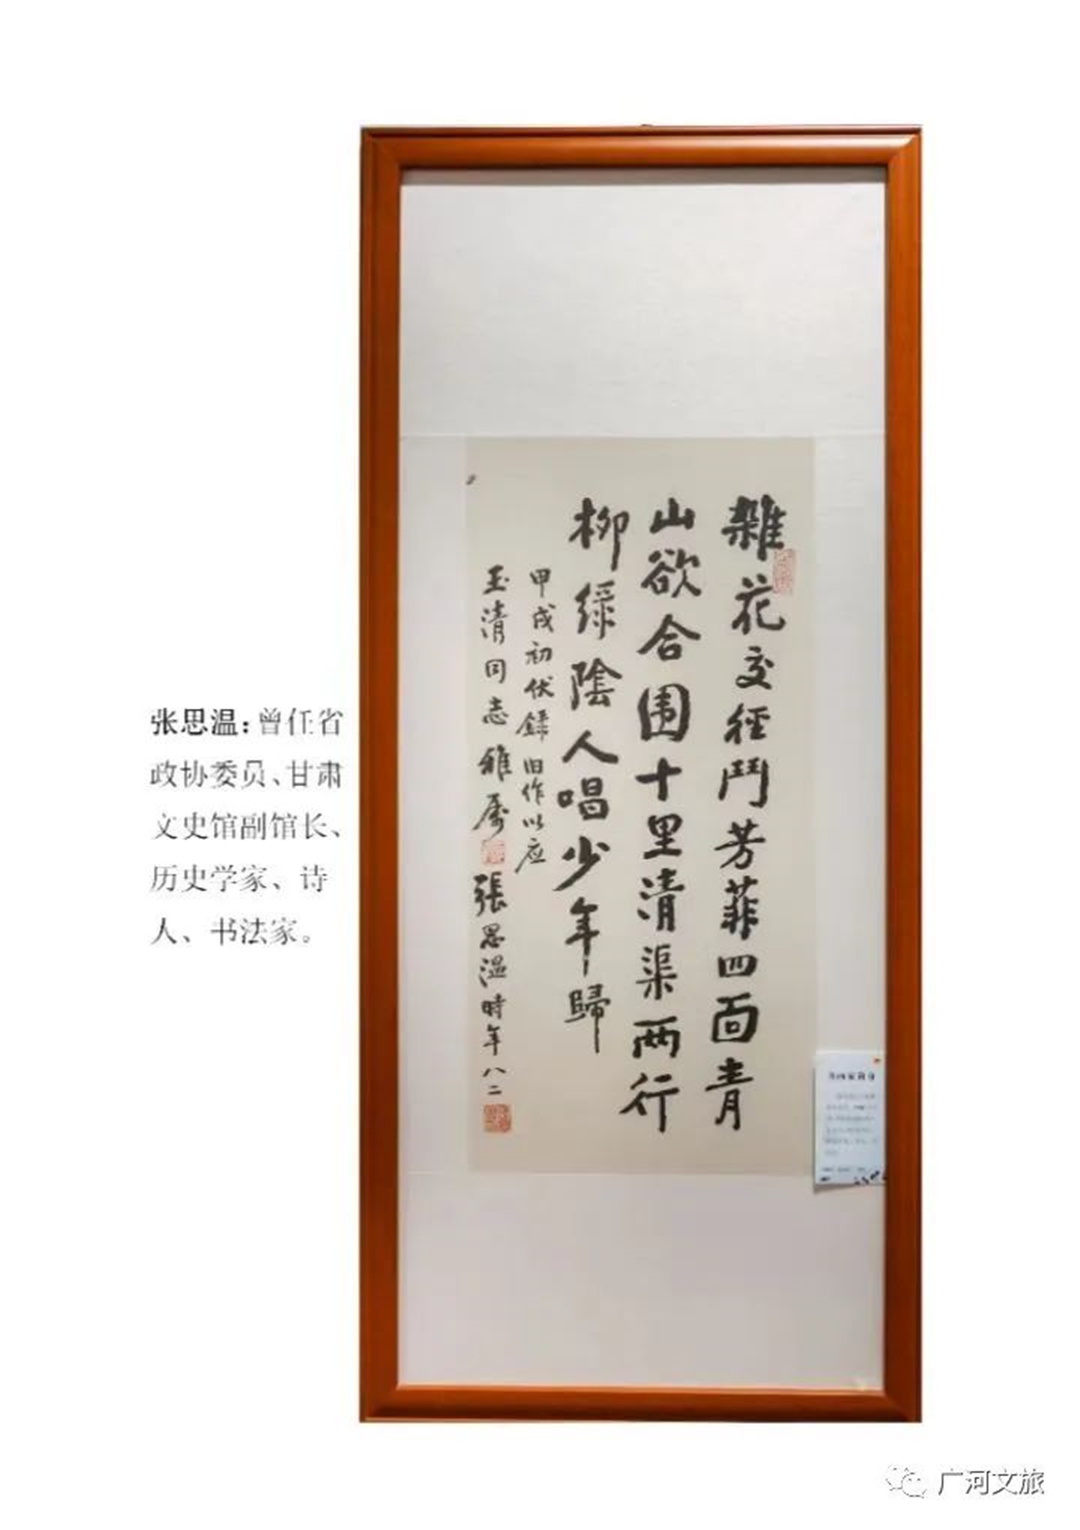 张思温：曾任省
政协委员、甘肃
文史馆副馆长、
历史学家、诗
人、书法家。
雜花交徑鬥芳菲四面青
山欲合围十里清渠两行
柳绿陰人唱少年歸
甲戌初伏録旧作以应
玉清同志雅属
張思温時年八二
广河文旅